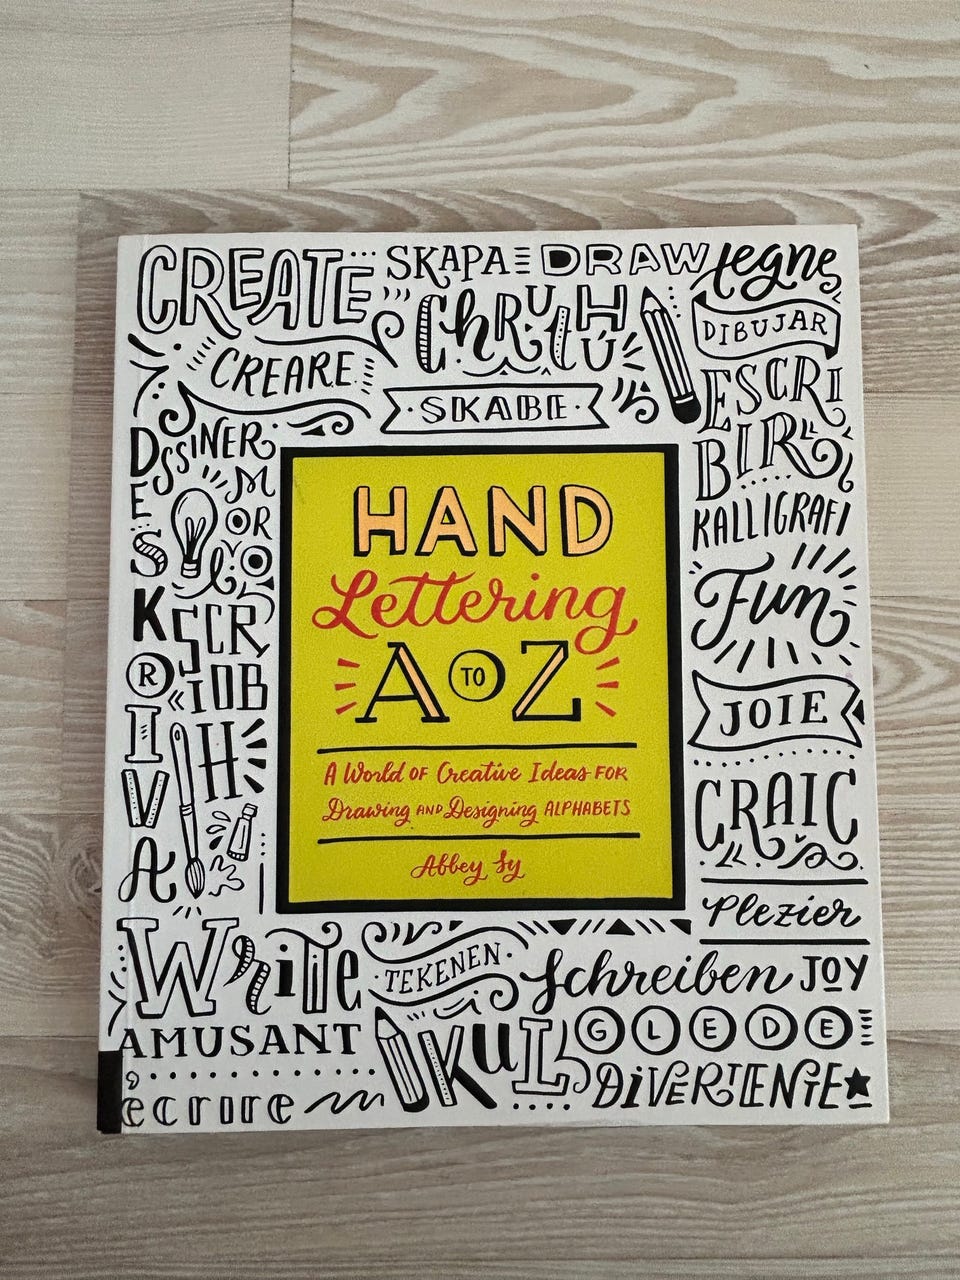 CREATE
SKAPA
DRAW
tegne
CREARE
ChRUthÚ
DIBUJAR
SKABE
ESCRI
BIR
DESSINER
SKRIVA
SCR
IOB
H
KALLIGRAFI
Fun
JOIE
CRAIC
Plezier
HAND
Lettering
A TO Z
A World OF Creative Ideas FOR
Drawing AND Designing ALPHABETS
Abbey Sy
Write
TEKENEN
Schreiben
JOY
AMUSANT
KUL
GLEDE
écrire
DIVERTENTE